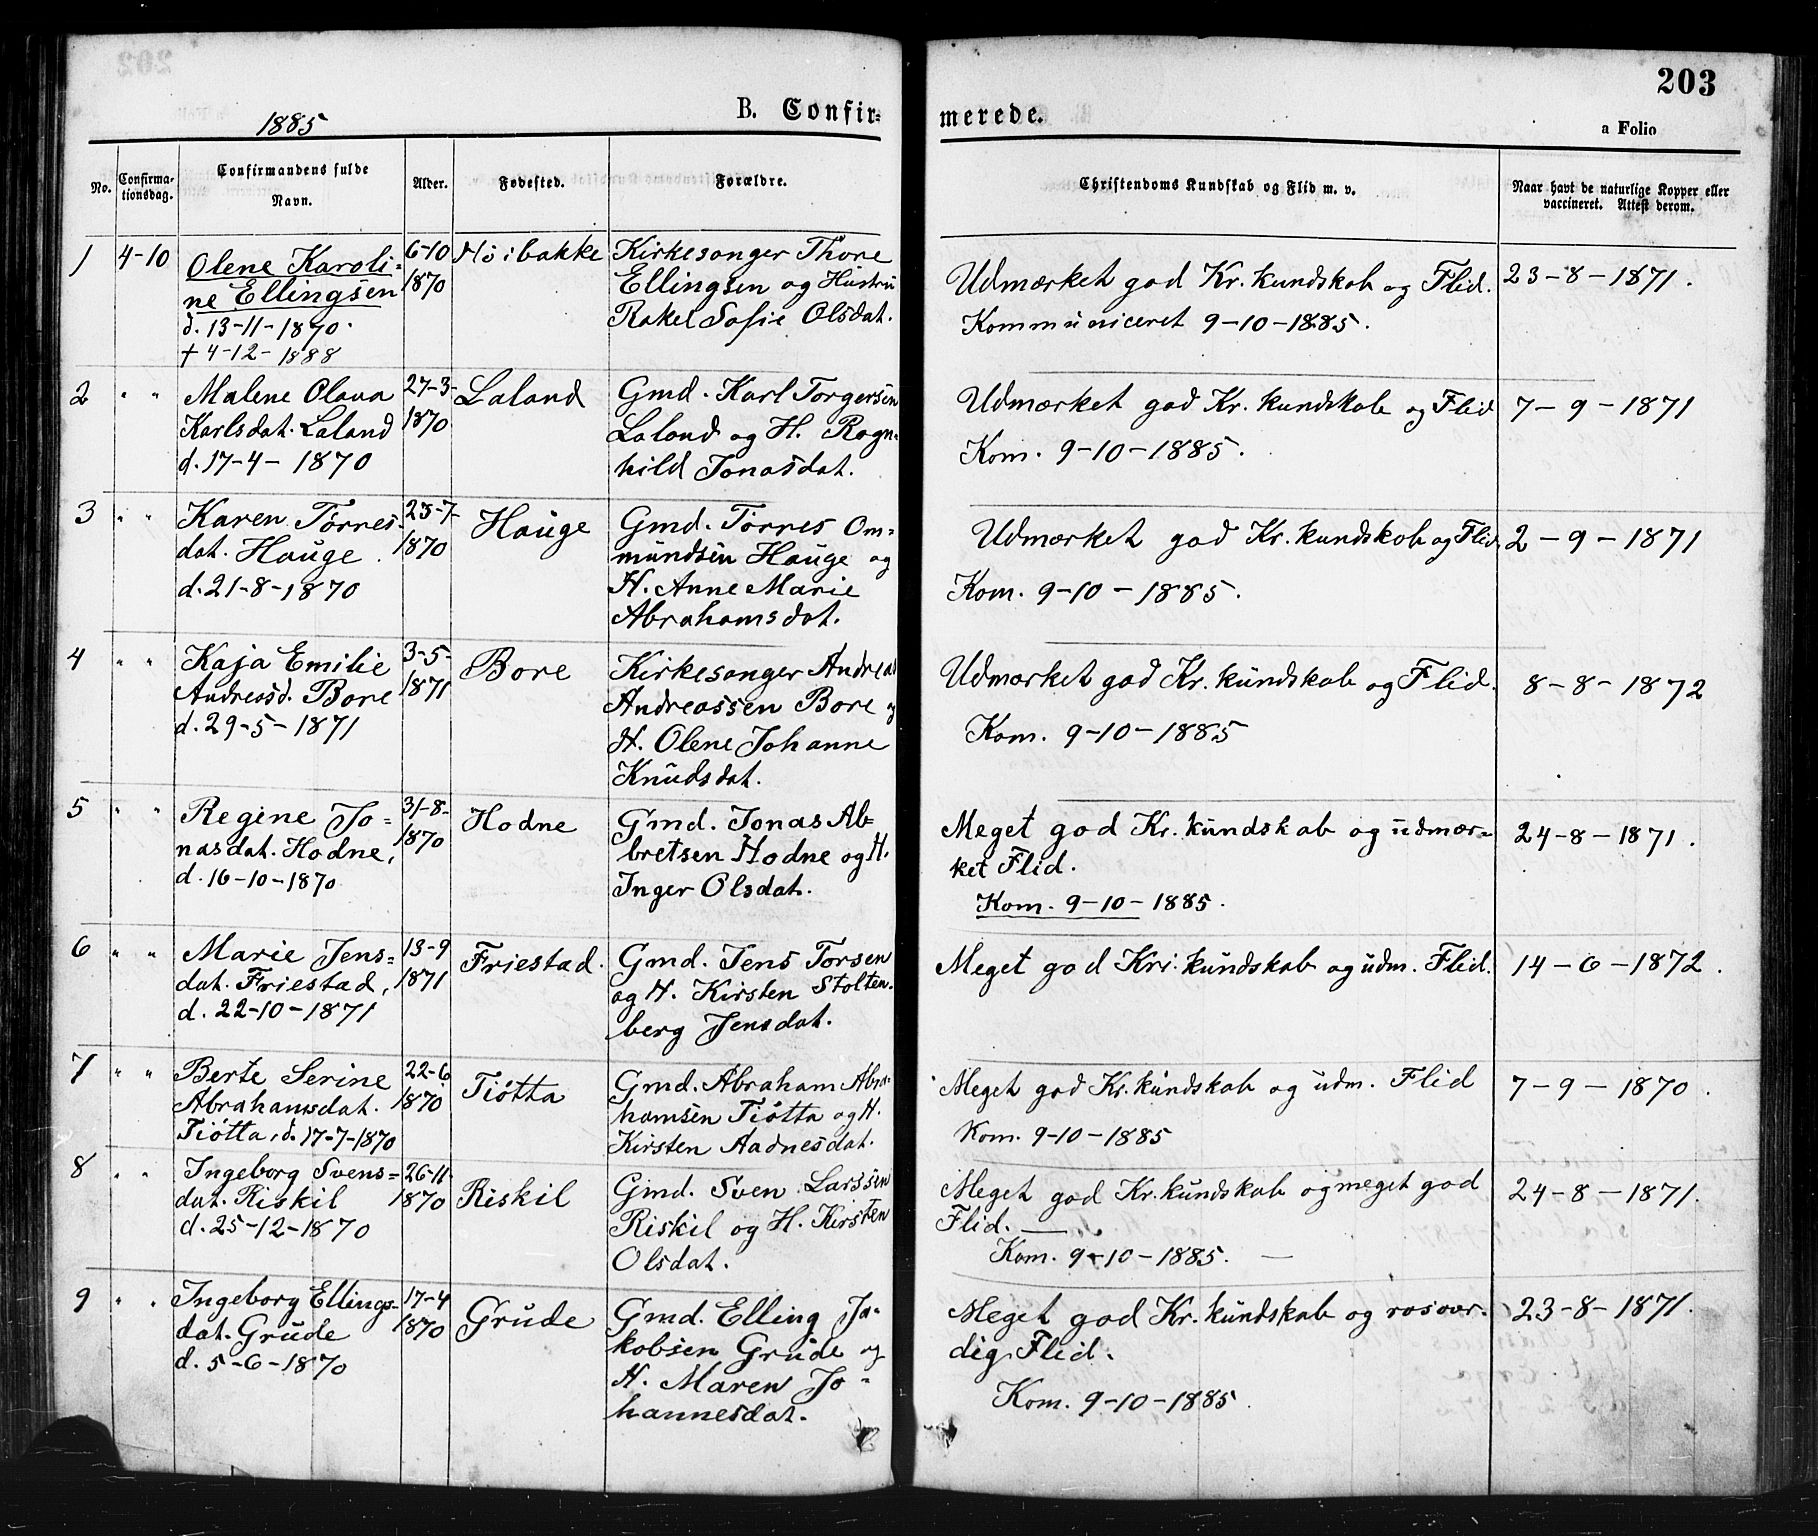 203
1885
B. Confir-
merede.
a Folio
No.
Confirma-
tionsdag.
Confirmandens fulde
Navn.
Alder.
Fødested.
Forældre.
Christendoms Kundskab og Flid m. v.
Naar havt de naturlige Kopper eller
vaccineret. Attest derom.
1
4-10
Olene Karoli-
ne Ellingsen
d. 13-11-1870.
† 4-12-1888
6-10
1870
Høibakke
Kirkesanger Thore
Ellingsen og Hustru
Rakel Sofie Olsdat.
Udmærket god Kr. kundskab og Flid.
Kommuniceret 9-10-1885.
23-8-1871.
2
" "
Malene Olava
Karlsdat. Laland
d. 17-4-1870
27-3-
1870
Laland
Gmd. Karl Torgersen
Laland og H. Ragn-
hild Jonasdat.
Udmærket god Kr. kundskab og Flid
Kom. 9-10-1885.
7-9-1871
3
" "
Karen Tørres-
dat. Hauge.
d. 21-8-1870
23-7-
1870
Hauge
Gmd. Tørres Om-
mundsen Hauge og
H. Anne Marie
Abrahamsdat.
Udmærket god Kr. kundskab og Flid
Kom. 9-10-1885.
2-9-1871
4
" "
Kaja Emilie
Andreasd. Bore
d. 29-5-1871
3-5-
1871
Bore
Kirkesanger Andreas
Andreassen Bore og
H. Olene Johanne
Knudsdat.
Udmærket god Kr. kundskab og Flid.
Kom. 9-10-1885
8-8-1872
5
" "
Regine Jo-
nasdat. Hodne,
d. 16-10-1870
31-8-
1870
Hodne
Gmd. Jonas Ab-
bretsen Hodne og H.
Inger Olsdat.
Meget god Kr. kundskab og udmær-
ket Flid.
Kom. 9-10-1885.
24-8-1871.
6
" "
Marie Jens-
dat. Friestad,
d. 22-10-1871
13-9
1871
Friestad.
Gmd. Jens Torsen
og H. Kirsten Stolten-
berg Jensdat.
Meget god Kri. kundskab og udm. Flid.
14-6-1872.
7
" "
Berte Serine
Abrahamsdat.
Tiøtta, d. 17-7-1870
22-6
1870
Tiøtta
Gmd. Abraham Abra-
hamsen Tiøtta og H.
Kirsten Aadnesdat.
Meget god Kr. kundskab og udm. Flid
Kom. 9-10-1885
7-9-1870.
8
" "
Ingeborg Svens-
dat. Riskil
d. 25-12-1870
26-11-
1870
Riskil
Gmd. Sven Larssen
Riskil og H. Kirsten
Olsdat.
Meget god Kr. kundskab og meget god
Flid.
Kom. 9-10-1885.
24-8-1871.
9
" "
Ingeborg Ellings-
dat. Grude
d. 5-6-1870
17-4
1870
Grude
Gmd. Elling Ja-
kobsen Grude og
H. Maren Jo-
hannesdat.
Meget god Kr. kundskab og rosvær-
dig Flid.
Kom. 9-10-1885.
23-8-1871.